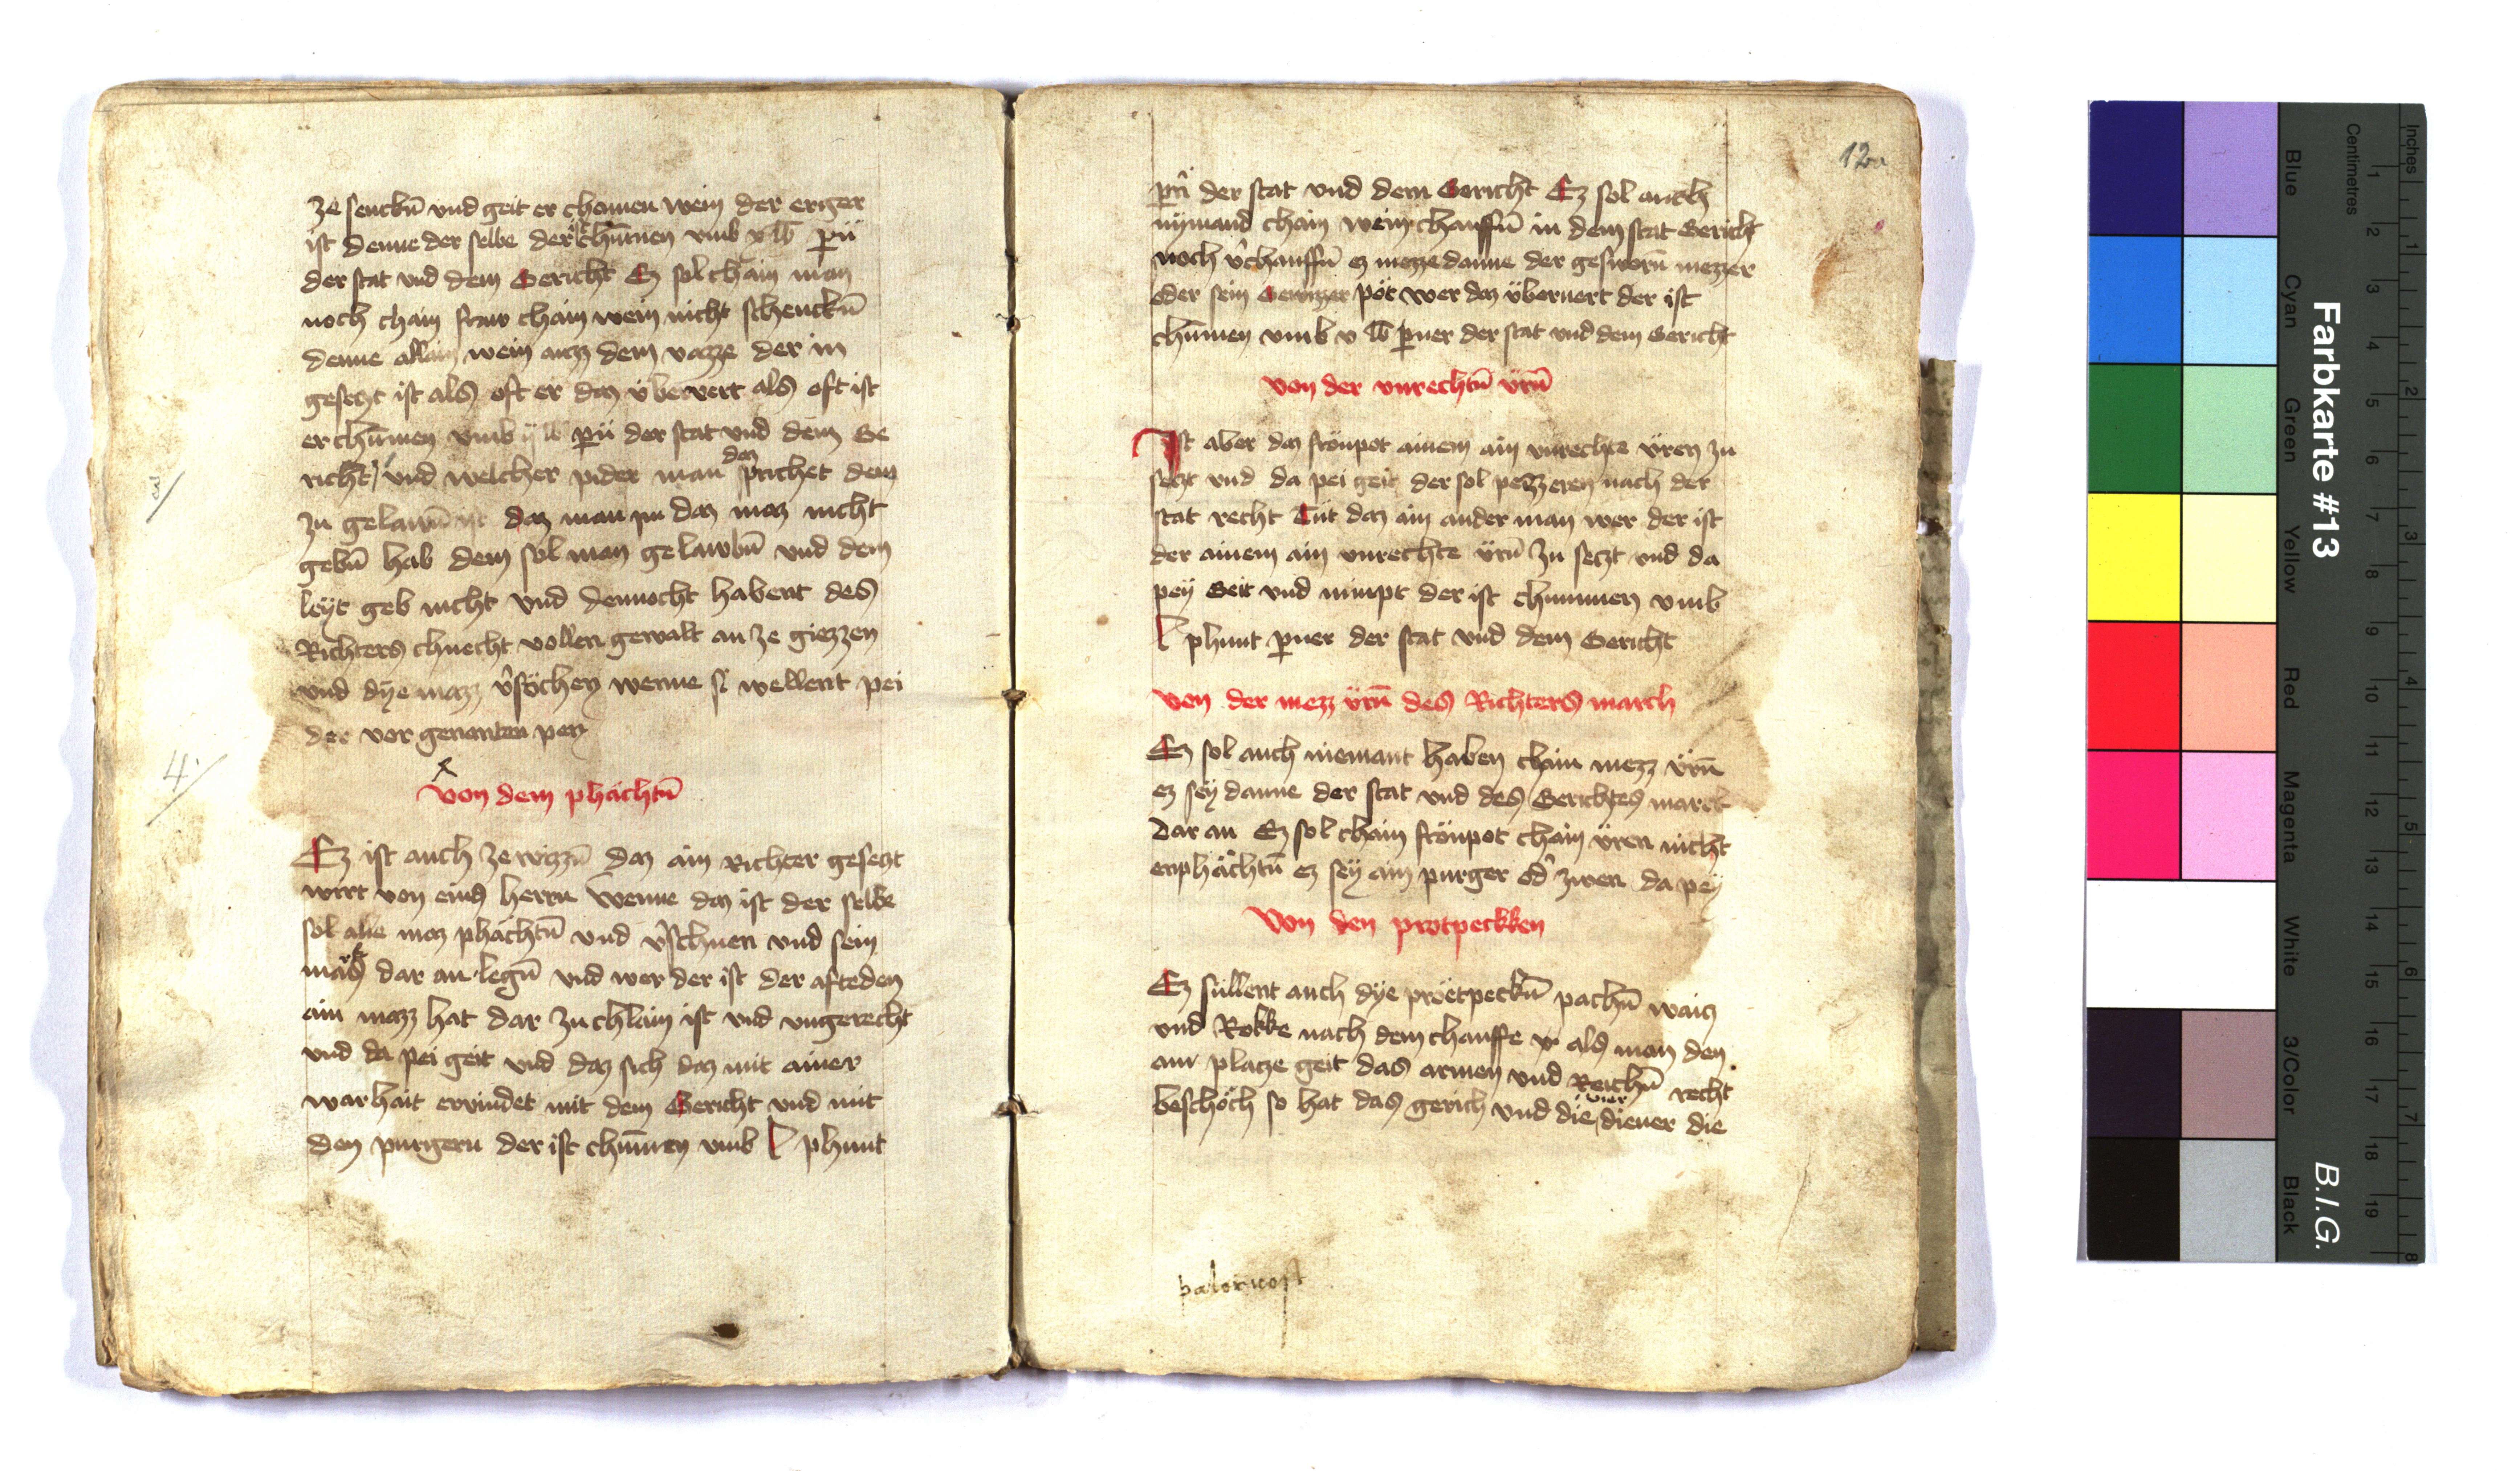 ze senckn̄ vnd geit er chomen wein der erger
ist denne der selbe der ist chūmen vmb v lb pn̄
der stat vnd dem Gericht Ez sol chain man
noch chain fraw chain wein nicht schenckn̄
denne allain wein auzz dem vazze der in
gesetzt ist als oft er daz v̈bervert als oft ist
er chūmen vmb ij lb pn̄ der stat vnd dem Ge
richt / vnd welcher pider man daz sprichet dem
zu gelawn̄ ist daz man im daz maz nicht
gebn̄ hab dem sol man gelawbn̄ vnd dem
leẏt geb nicht vnd dennocht habent des
Richters chnecht vollen gewalt an ze giezzen
vnd dẏe mazz v̓söchen wenne si wellent pei
der vor genanten pen
4.
Von dem phächtn̄
Ez ist auch ze wizzn̄ daz ain Richter gesetzt
wirt von eins herrn wenne daz ist der selbe
sol alle maz phächtn̄ vnd v̓schnen vnd sein
march dar an legn̄ vnd wer der ist der afteden
ain mazz hat dar zu chlain ist vnd vngerecht
vnd da pei geit vnd daz sich daz mit ainer
warhait ervindet mit dem Gericht vnd mit
den purgern der ist chūmen vmb l phunt
12a
pn̄ der stat vnd dem Gericht Ez sol auch
nÿmand chain wein chauffn̄ in dem stat Gericht
noch v̓chauffn̄ ez mezze danne der gesworn̄ mezzer
oder sein Gewizzer pot wer daz v̈bervert der ist
chūmen vmb v lb pner der stat vnd dem Gericht
von der vnrechtn̄ v̈rn̄
Ist aber daz frönpot ainem ain vnrechte v̈ren zu
setzt vnd da pei geit der sol pezzeren nach der
stat recht Tüt daz ain ander man wer der ist
der ainem ain vnrechte v̈rn̄ zu setzt vnd da
peÿ Geit vnd nimpt der ist chummen vmb
l phunt pner der stat vnd dem Gericht
von der mezz v̈rn̄ des Richters march
Ez sol auch niemant haben chain mezz v̈rn̄
ez seÿ danne der stat vnd des Gerichtes march
dar an Ez sol chain frönpot chain v̈ren nicht
enphächtn̄ ez seÿ ain purger od̓ zwen da peÿ
Von den protpeckken
Ez süllent auch dÿe pröetpeckn̄ pachn̄ waitz
vnd Rokke nach dem chauffe als man den
am platze geit das armen vnd Reichn̄ recht
beschöch so hat das gerich vnd die vier diener die